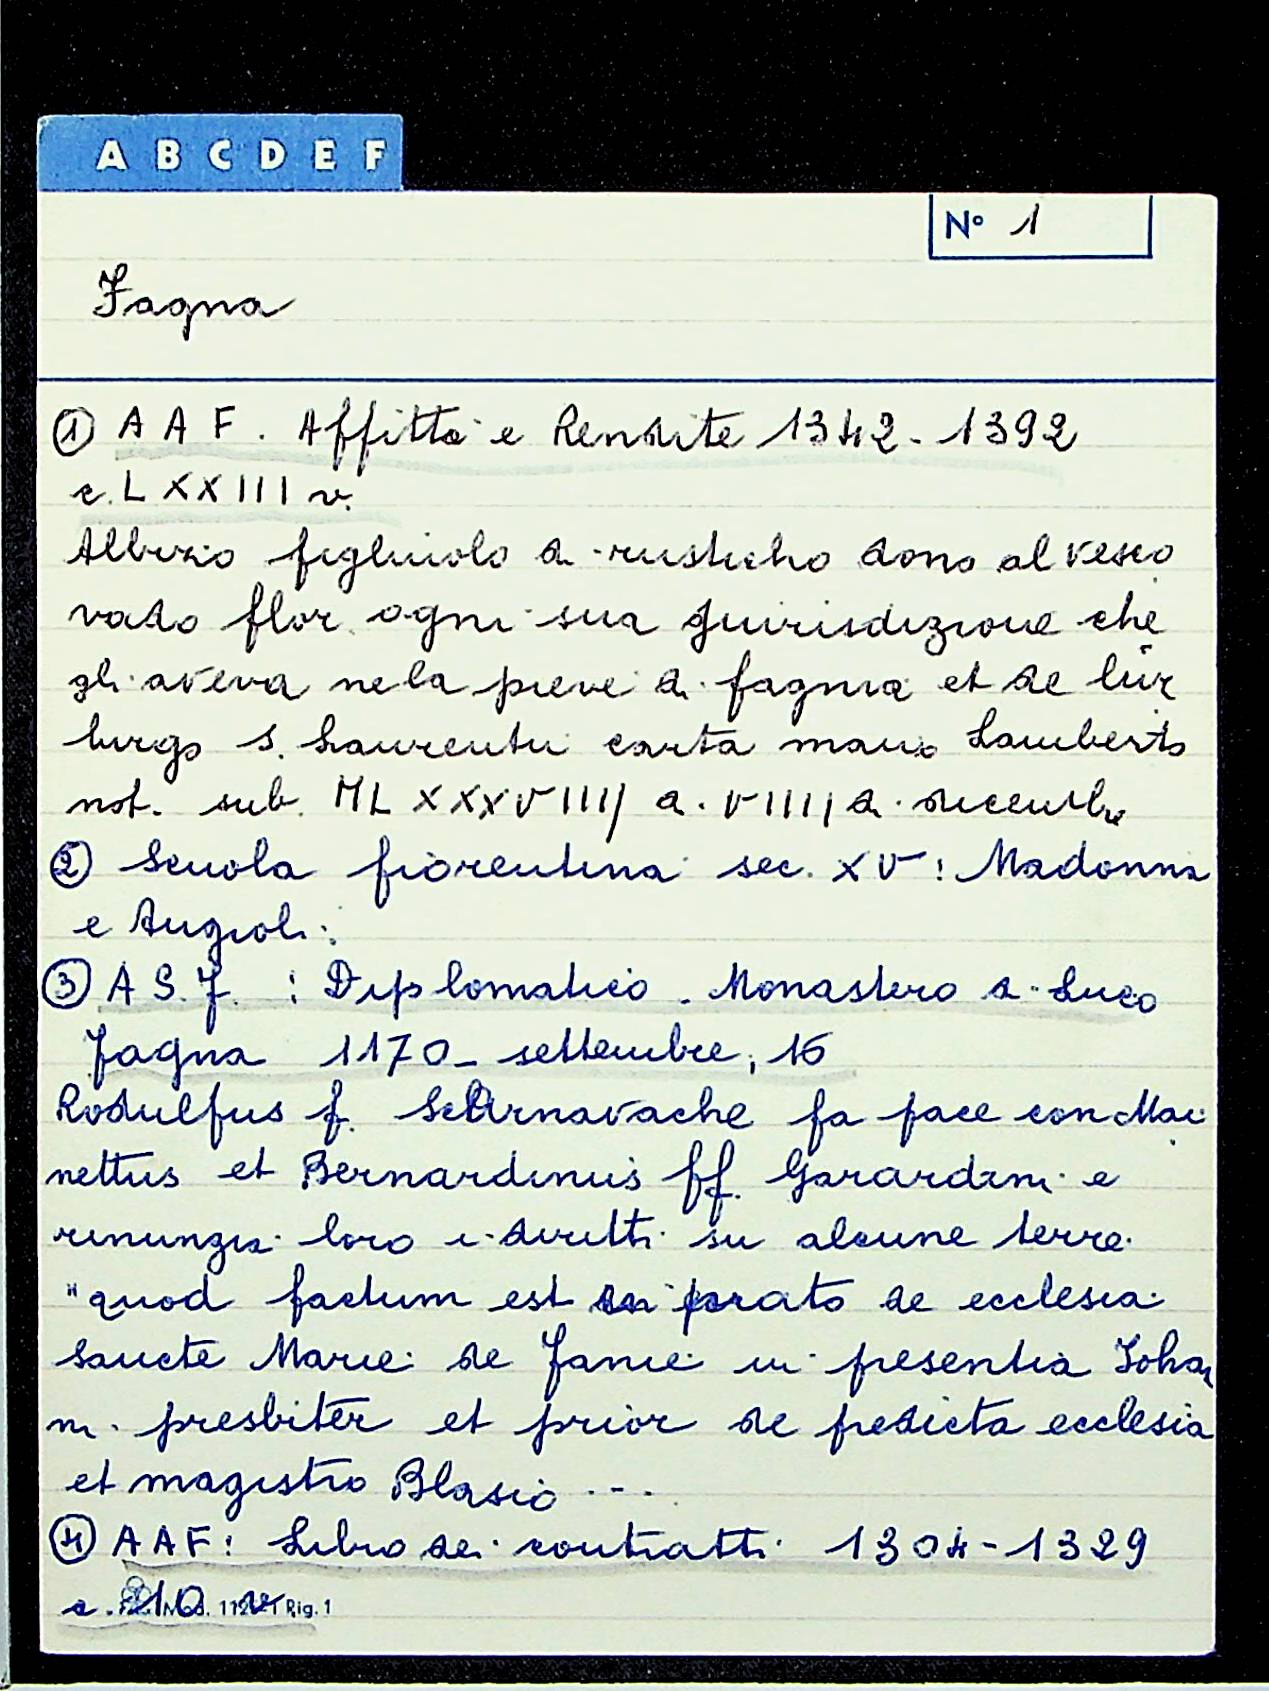 A B C D E F
N° 1
Fagna
① A A F. Affitti e Rendite 1342-1392
c. L X X I I I v.
Alberto figliuolo di rusticho dono al vesco
vado flor. ogni sua giurisdizione che
gli aveva nela pieve di fagna et de
burgo S. Laurentii carta mano Lamberto
not. sub. M L X X X V I I I I a. V I I I I di dicembre
② Scuola fiorentina sec. XV: Madonna
e Angioli.
③ A S. F. : Diplomatico. Monastero di Luco
Fagna 1170 - settembre, 16
Rodulfus f. fa pace con Mai
nettus et Bernardinus ff. Gerardini e
rinunzia loro i diritti su alcune terre.
"quod factum est in prato de ecclesia
Sancte Marie de Fanie in presentia Johan
ni presbiter et prior de predicta ecclesia
et magistro Blasio ...
④ A A F: Libro dei contratti 1304-1329
c. 210 v
Rig. 1